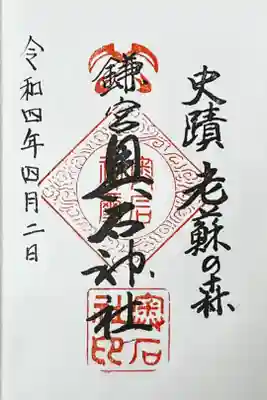 史蹟 老蘇の森
鎌宮奥石神社
奥石神社
奥石社印
令和四年四月二日